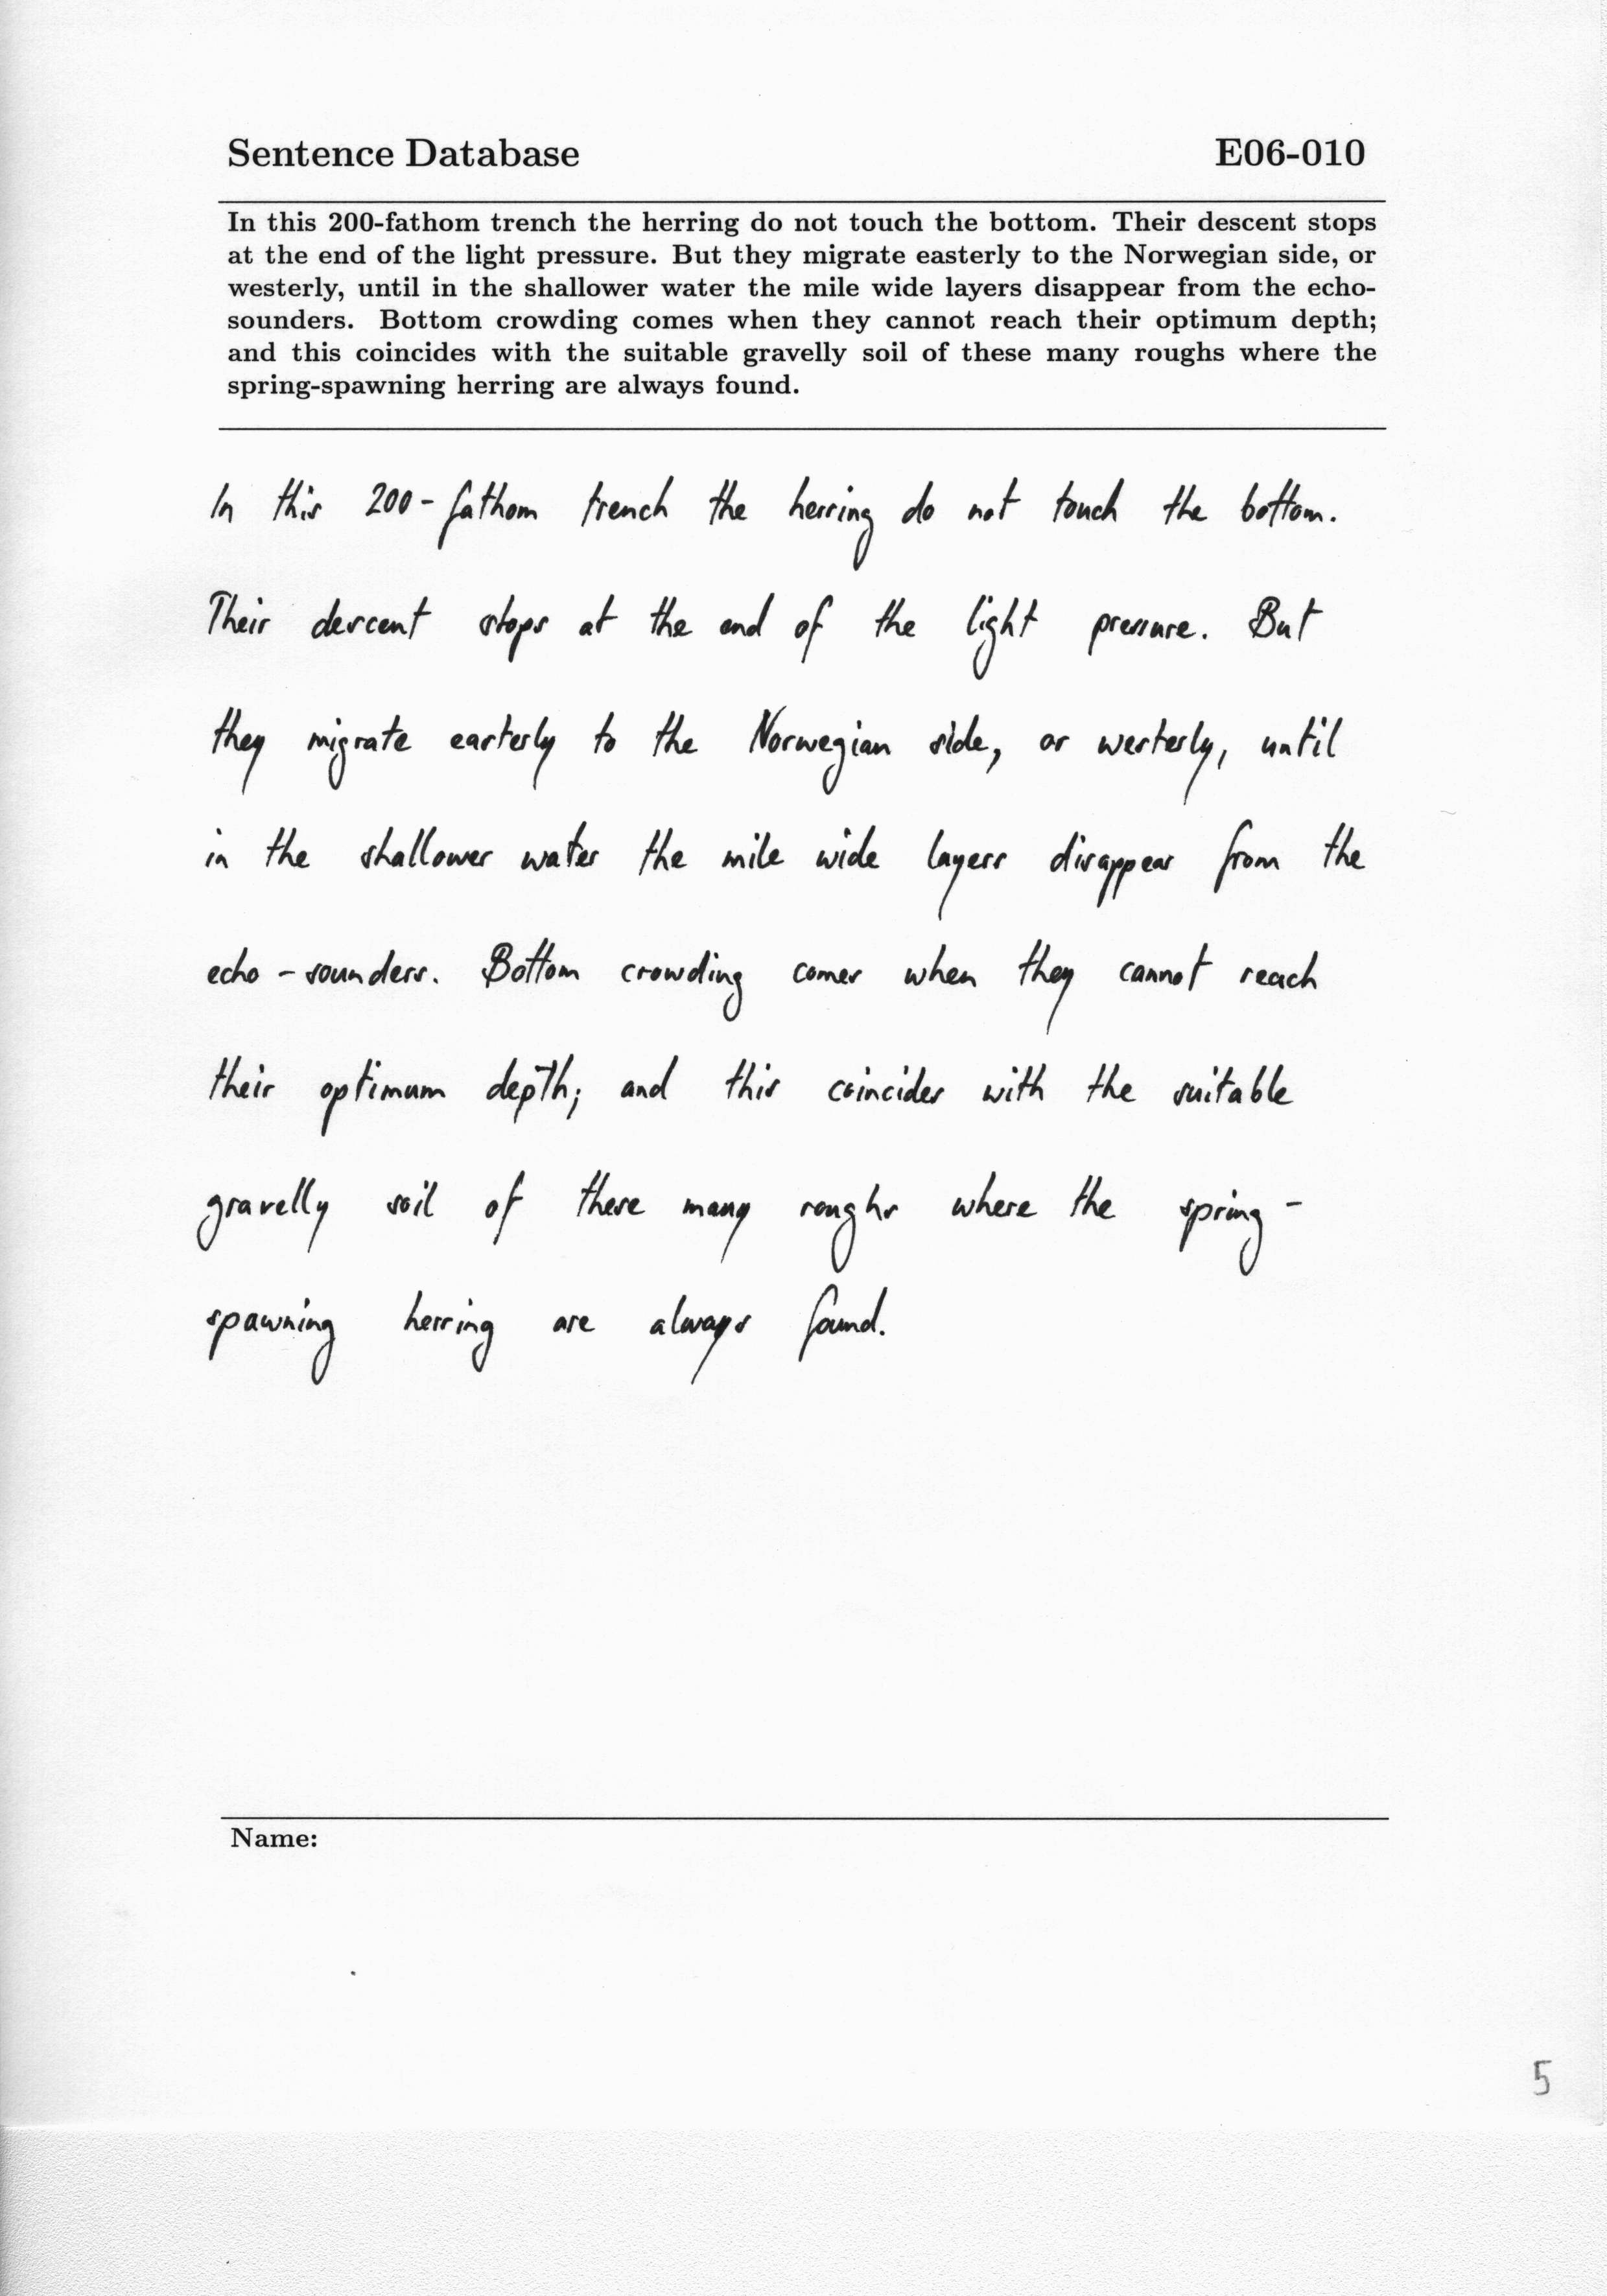 Sentence Database E06-010
In this 200-fathom trench the herring do not touch the bottom. Their descent stops
at the end of the light pressure. But they migrate easterly to the Norwegian side, or
westerly, until in the shallower water the mile wide layers disappear from the echo-
sounders. Bottom crowding comes when they cannot reach their optimum depth;
and this coincides with the suitable gravelly soil of these many roughs where the
spring-spawning herring are always found.
In this 200-fathom trench the herring do not touch the bottom.
Their descent stops at the end of the light pressure. But
they migrate easterly to the Norwegian side, or westerly, until
in the shallower water the mile wide layers disappear from the
echo-sounders. Bottom crowding comes when they cannot reach
their optimum depth; and this coincides with the suitable
gravelly soil of these many roughs where the spring-
spawning herring are always found.
Name:
5